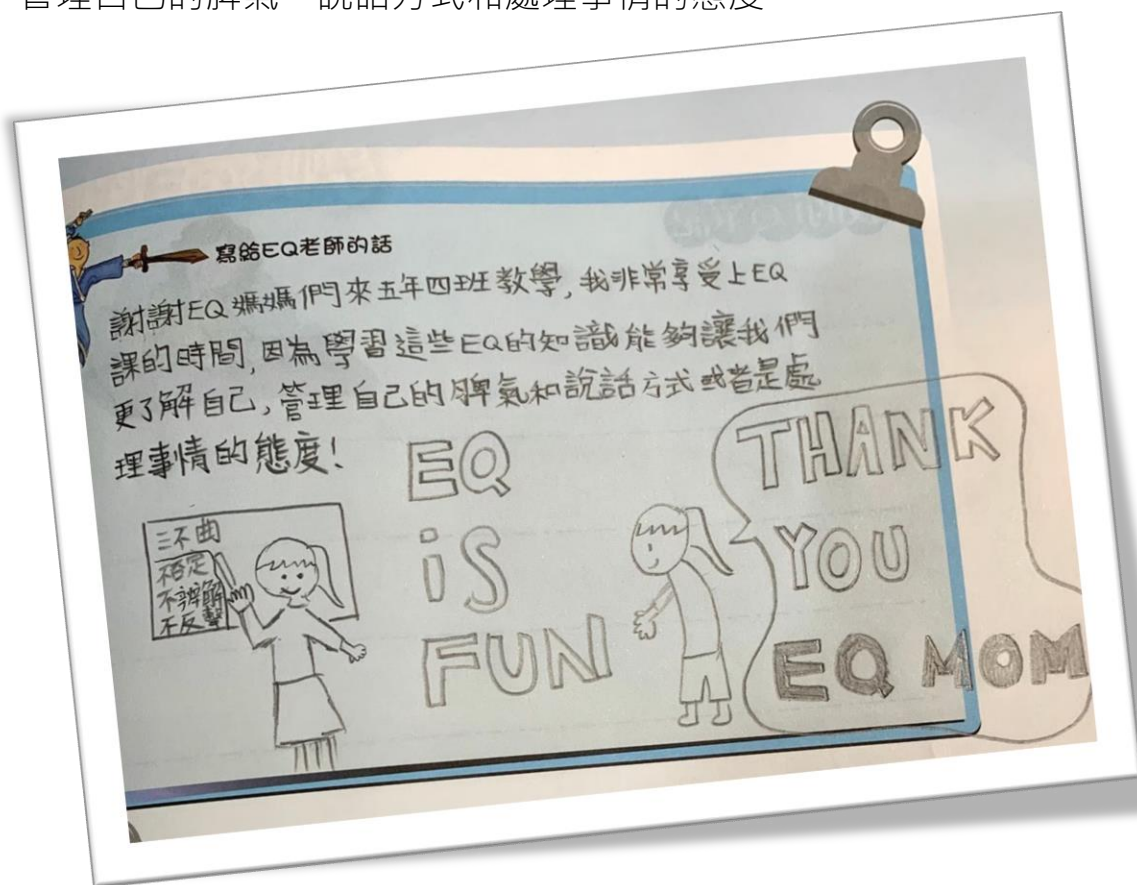 管理自己的脾氣、說話方式和處理事情的態度
寫給EQ老師的話
謝謝EQ媽媽們來五年四班教學,我非常享受上EQ
課的時間,因為學習這些EQ的知識能夠讓我們
更了解自己,管理自己的脾氣和說話方式或者是處
理事情的態度!
三不曲
不否定
不辨解
不反擊
EQ
iS
FUN
THANK
YOU
EQ MOM